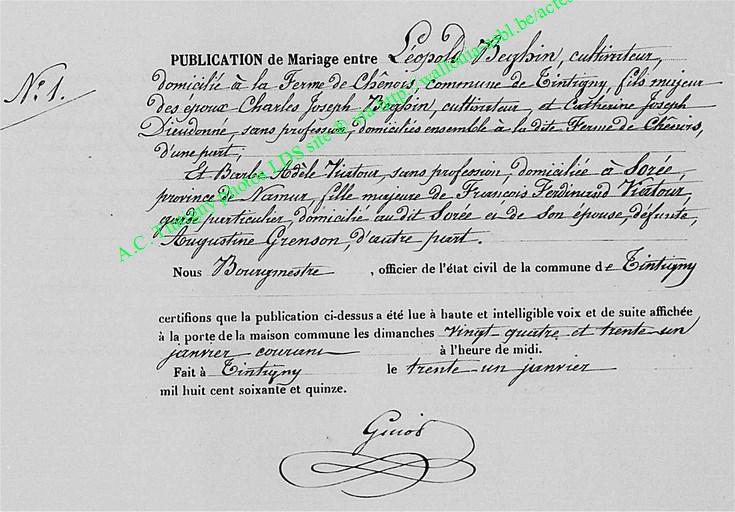 N.º 1.
PUBLICATION de Mariage entre Léopold Beghin, cultivateur,
domicilié à la Ferme de Chênois, commune de Tintigny, fils majeur
des époux Charles Joseph Beghin, cultivateur, et Catherine Joseph
Dieudonné, sans profession, domiciliés ensemble à la dite Ferme de Chênois,
d'une part;
Et Barbe Adèle Viatour, sans profession, domiciliée à Sorée,
province de Namur, fille majeure de François Ferdinand Viatour,
garde particulier, domicilié au dit Sorée et de son épouse, défunte,
Augustine Grenson, d'autre part.
Nous Bourgmestre , officier de l'état civil de la commune de Tintigny
certifions que la publication ci-dessus a été lue à haute et intelligible voix et de suite affichée
à la porte de la maison commune les dimanches vingt-quatre et trente-un
janvier courant à l'heure de midi.
Fait à Tintigny le trente-un janvier
mil huit cent soixante et quinze.
A.C. Tintigny photos LDS site ® via http://wallonia-asbl.be/actes